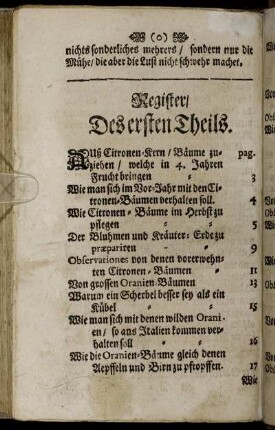 (0)
nichts sonderliches mehrers / sondern nur die
Mühe / die aber die Lust nicht schwehr machet.
Register /
Des ersten Theils.
Auß Citronen-Kern / Bäume zu- pag.
ziehen / welche in 4. Jahren
Frucht bringen 3
Wie man sich im Vor-Jahr mit den Ci-
tronen-Bäumen verhalten soll. 4
Wie Citronen-Bäume im Herbst zu
pflegen 5
Der Bluhmen und Kräuter-Erde zu
præpariren 9
Observationes von denen vorerwehn-
ten Citronen-Bäumen 11
Von grossen Oranien-Bäumen 13
Warum ein Scherbel besser sey als ein
Kübel 15
Wie man sich mit denen wilden Orani-
en / so aus Italien kommen ver-
halten soll 16
Wie die Oranien-Bäume gleich denen
Aepffeln und Birn zu pfropffen. 17
Wie